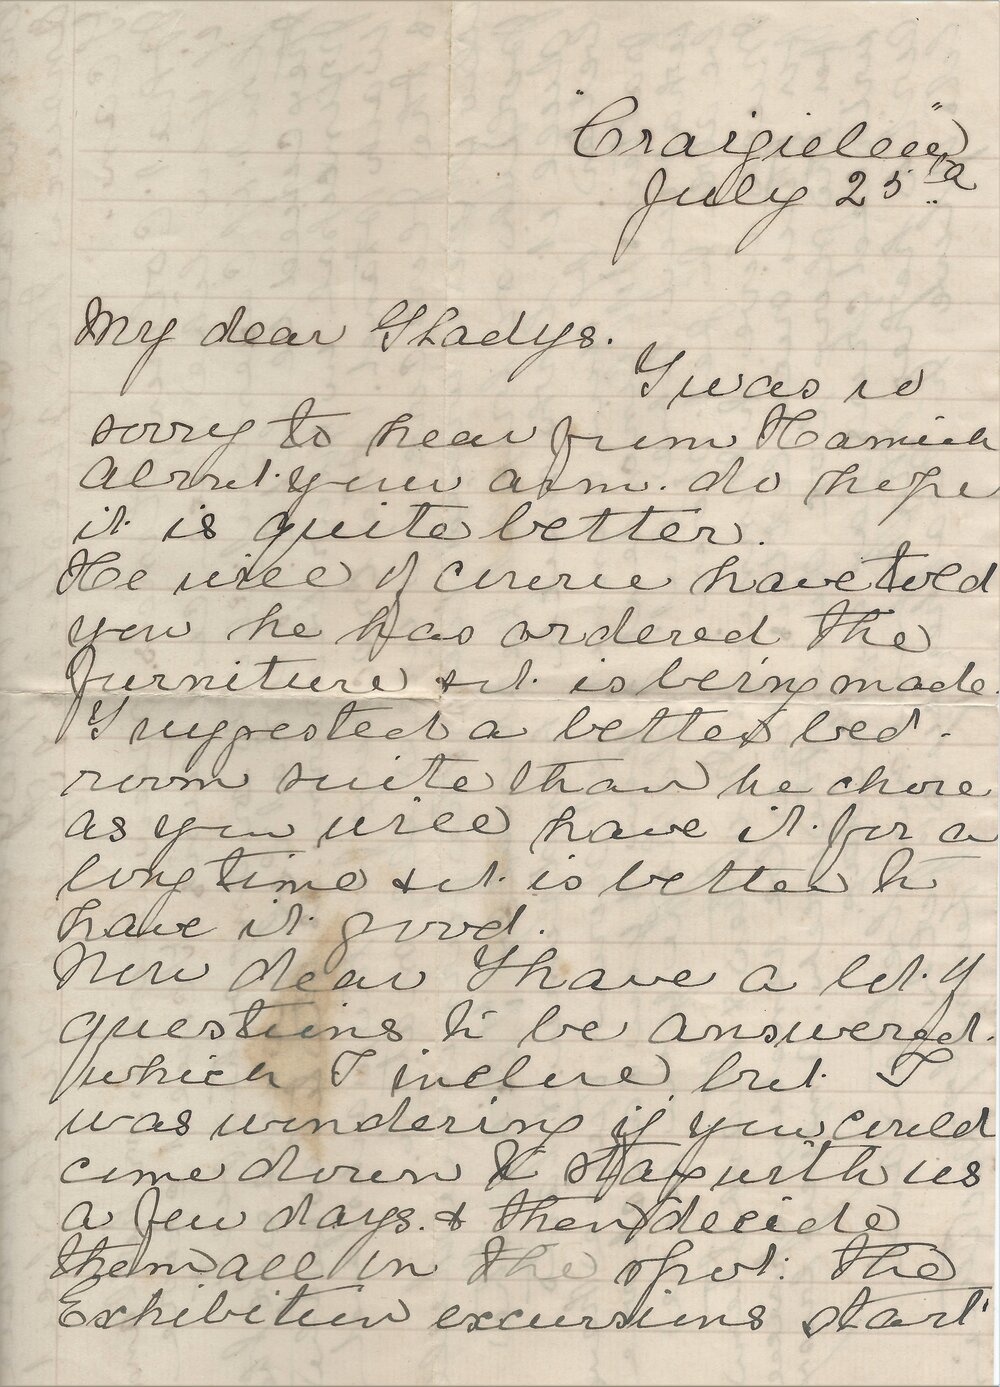 "Craigielee"
July 25th
My dear Gladys.
I was so
sorry to hear from Hamish
about your arm. do hope
it is quite better.
He will of course have told
you he has ordered the
furniture & it is being made.
I suggested a better bed-
room suite than he chose
as you will have it for a
long time & it is better to
have it good.
Now dear I have a lot of
questions to be answered.
which I inclose but I
was wondering if you could
come down & stay with us
a few days. & then decide
them all on the spot: the
Exhibition excursions start